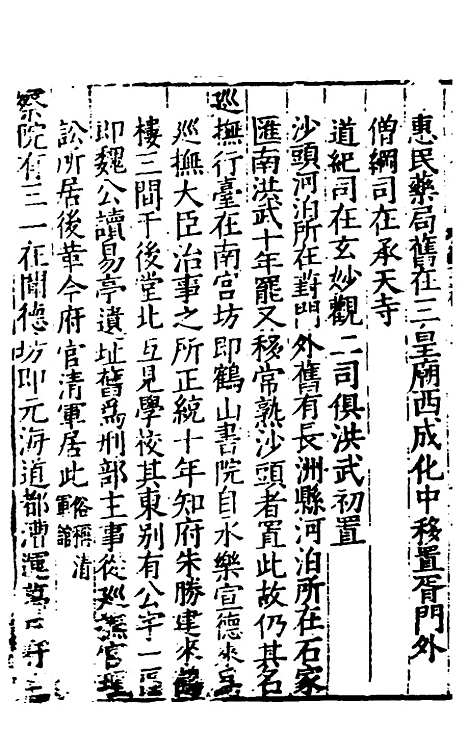 惠民藥局舊在三皇廟西成化中移置胥門外
僧綱司在承天寺
道紀司在玄妙觀二司俱洪武初置
沙頭河泊所在葑門外舊有長洲縣河泊所在石家
匯南洪武十年罷又移常熟沙頭者置此故仍其名
巡撫行臺在南宮坊即鶴山書院自永樂宣德來為
巡撫大臣治事之所正統十年知府朱勝建來鶴
樓三間于後堂北互見學校其東別有公宇一區
即魏公讀易亭遺址舊為刑部主事從巡撫官理
訟所居後革今府官清軍居此俗稱清軍館
察院有三一在閶德坊即元海道都漕運萬戶府